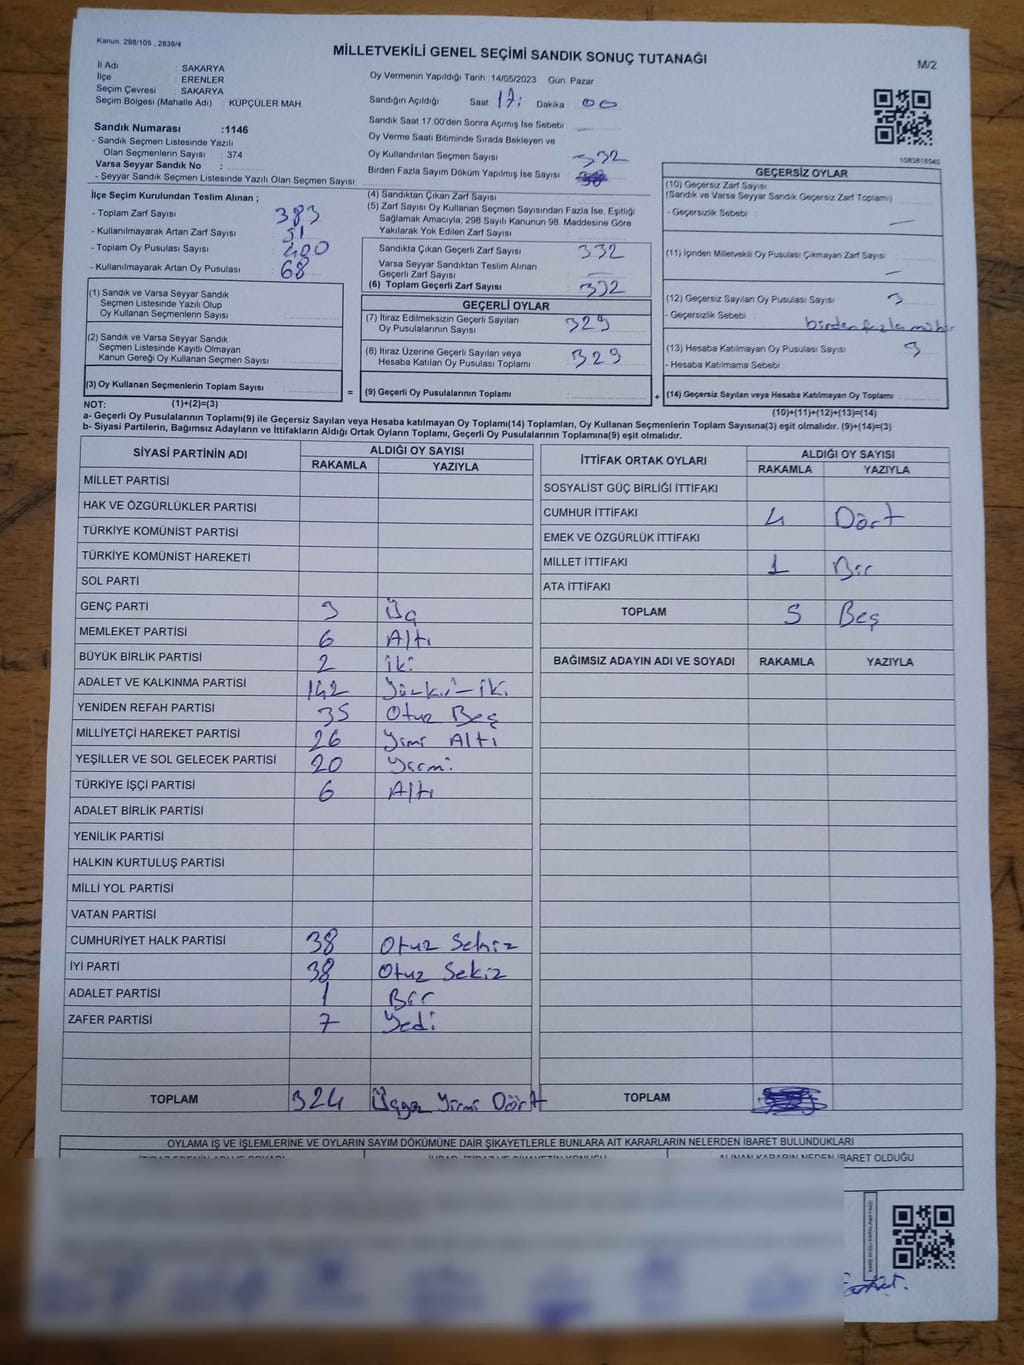 Kanun: 298/105 , 2839/4
MİLLETVEKİLİ GENEL SEÇİMİ SANDIK SONUÇ TUTANAĞI
M/2
İl Adı : SAKARYA
İlçe : ERENLER
Seçim Çevresi : SAKARYA
Seçim Bölgesi (Mahalle Adı) : KÜPÇÜLER MAH.
Oy Vermenin Yapıldığı Tarih :14/05/2023 Gün: Pazar
Sandığın Açıldığı Saat 17: Dakika 00
Sandık Saat 17:00'den Sonra Açılmış İse Sebebi :
Oy Verme Saati Bitiminde Sırada Bekleyen ve
Oy Kullandırılan Seçmen Sayısı 332
Birden Fazla Sayım Döküm Yapılmış İse Sayısı
Sandık Numarası :1146
- Sandık Seçmen Listesinde Yazılı
Olan Seçmenlerin Sayısı : 374
Varsa Seyyar Sandık No :
- Seyyar Sandık Seçmen Listesinde Yazılı Olan Seçmen Sayısı:
İlçe Seçim Kurulundan Teslim Alınan ;
- Toplam Zarf Sayısı 383
- Kullanılmayarak Artan Zarf Sayısı 51
- Toplam Oy Pusulası Sayısı 400
- Kullanılmayarak Artan Oy Pusulası 68
(1) Sandık ve Varsa Seyyar Sandık
Seçmen Listesinde Yazılı Olup
Oy Kullanan Seçmenlerin Sayısı :
(2) Sandık ve Varsa Seyyar Sandık
Seçmen Listesinde Kayıtlı Olmayan
Kanun Gereği Oy Kullanan Seçmen Sayısı :
(3) Oy Kullanan Seçmenlerin Toplam Sayısı :
(1)+(2)=(3)
(4) Sandıktan Çıkan Zarf Sayısı
(5) Zarf Sayısı Oy Kullanan Seçmen Sayısından Fazla İse, Eşitliği
Sağlamak Amacıyla, 298 Sayılı Kanunun 98. Maddesine Göre
Yakılarak Yok Edilen Zarf Sayısı :
Sandıkta Çıkan Geçerli Zarf Sayısı 332
Varsa Seyyar Sandıktan Teslim Alınan
Geçerli Zarf Sayısı :
(6) Toplam Geçerli Zarf Sayısı : 332
GEÇERLİ OYLAR
(7) İtiraz Edilmeksizin Geçerli Sayılan
Oy Pusulalarının Sayısı : 329
(8) İtiraz Üzerine Geçerli Sayılan veya
Hesaba Katılan Oy Pusulası Toplamı : 329
= (9) Geçerli Oy Pusulalarının Toplamı :
1083818540
GEÇERSİZ OYLAR
(10) Geçersiz Zarf Sayısı
(Sandık ve Varsa Seyyar Sandık Geçersiz Zarf Toplamı)
- Geçersizlik Sebebi : —
(11) İçinden Milletvekili Oy Pusulası Çıkmayan Zarf Sayısı : —
(12) Geçersiz Sayılan Oy Pusulası Sayısı : 3
- Geçersizlik Sebebi : birden fazla mühür
(13) Hesaba Katılmayan Oy Pusulası Sayısı : 3
- Hesaba Katılmama Sebebi :
+ (14) Geçersiz Sayılan veya Hesaba Katılmayan Oy Toplamı :
(10)+(11)+(12)+(13)=(14)
NOT:
a- Geçerli Oy Pusulalarının Toplamı(9) ile Geçersiz Sayılan veya Hesaba katılmayan Oy Toplamı(14) Toplamları, Oy Kullanan Seçmenlerin Toplam Sayısına(3) eşit olmalıdır. (9)+(14)=(3)
b- Siyasi Partilerin, Bağımsız Adayların ve İttifakların Aldığı Ortak Oyların Toplamı, Geçerli Oy Pusulalarının Toplamına(9) eşit olmalıdır.
SİYASİ PARTİNİN ADI ALDIĞI OY SAYISI
RAKAMLA YAZIYLA
MİLLET PARTİSİ
HAK VE ÖZGÜRLÜKLER PARTİSİ
TÜRKİYE KOMÜNİST PARTİSİ
TÜRKİYE KOMÜNİST HAREKETİ
SOL PARTİ
GENÇ PARTİ 3 Üç
MEMLEKET PARTİSİ 6 Altı
BÜYÜK BİRLİK PARTİSİ 2 İki
ADALET VE KALKINMA PARTİSİ 142 Yüzkır-iki
YENİDEN REFAH PARTİSİ 35 Otuz Beş
MİLLİYETÇİ HAREKET PARTİSİ 26 Yirmi Altı
YEŞİLLER VE SOL GELECEK PARTİSİ 20 Yirmi
TÜRKİYE İŞÇİ PARTİSİ 6 Altı
ADALET BİRLİK PARTİSİ
YENİLİK PARTİSİ
HALKIN KURTULUŞ PARTİSİ
MİLLİ YOL PARTİSİ
VATAN PARTİSİ
CUMHURİYET HALK PARTİSİ 38 Otuz Sekiz
İYİ PARTİ 38 Otuz Sekiz
ADALET PARTİSİ 1 Bir
ZAFER PARTİSİ 7 Yedi
TOPLAM 324 Üçyüz Yirmi Dört
İTTİFAK ORTAK OYLARI ALDIĞI OY SAYISI
RAKAMLA YAZIYLA
SOSYALİST GÜÇ BİRLİĞİ İTTİFAKI
CUMHUR İTTİFAKI 4 Dört
EMEK VE ÖZGÜRLÜK İTTİFAKI
MİLLET İTTİFAKI 1 Bir
ATA İTTİFAKI
TOPLAM 5 Beş
BAĞIMSIZ ADAYIN ADI VE SOYADI RAKAMLA YAZIYLA
TOPLAM
OYLAMA İŞ VE İŞLEMLERİNE VE OYLARIN SAYIM DÖKÜMÜNE DAİR ŞİKAYETLERLE BUNLARA AİT KARARLARIN NELERDEN İBARET BULUNDUKLARI
ALINAN KARARIN NEDEN İBARET OLDUĞU